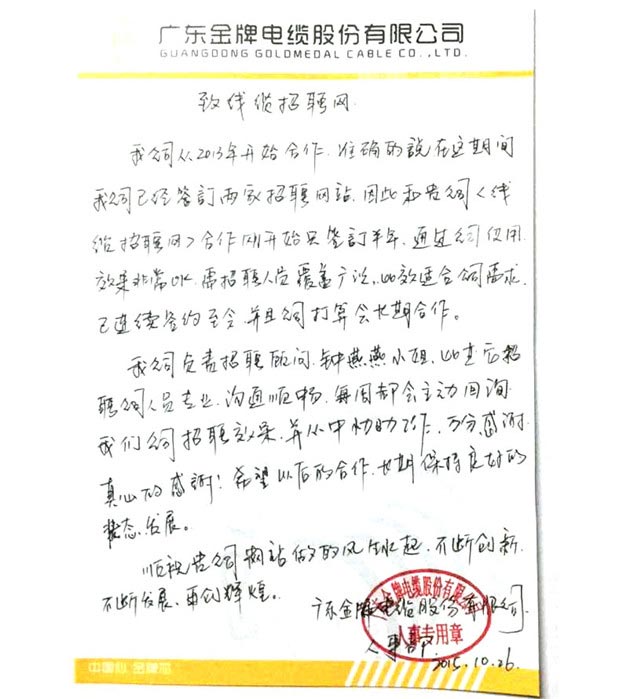 广东金牌电缆股份有限公司
GUANGDONG GOLDMEDAL CABLE CO.,LTD.
致线缆招聘网
我公司从2013年开始合作，准确的说在这期间
我公司已经签订两家招聘网站，因此和贵公司《线
缆招聘网》合作刚开始只签订半年，通过公司使用
效果非常OK，需招聘人员覆盖广泛，此效适合公司需求，
已连续签约至今，并且公司打算会长期合作。
我公司负责招聘顾问，钟燕燕小姐，
聘公司人员专业，沟通顺畅，每周都会主动回询
我们公司招聘效果，并从中协助工作，万分感谢，
真心的感谢！希望以后的合作，长期保持良好的
状态发展。
顺祝贵公司网站做的风生水起，不断创新，
不断发展，再创辉煌。
广东金牌电缆股份有限公司
人事专用章
人事部
2015.10.26
中国心 金牌芯